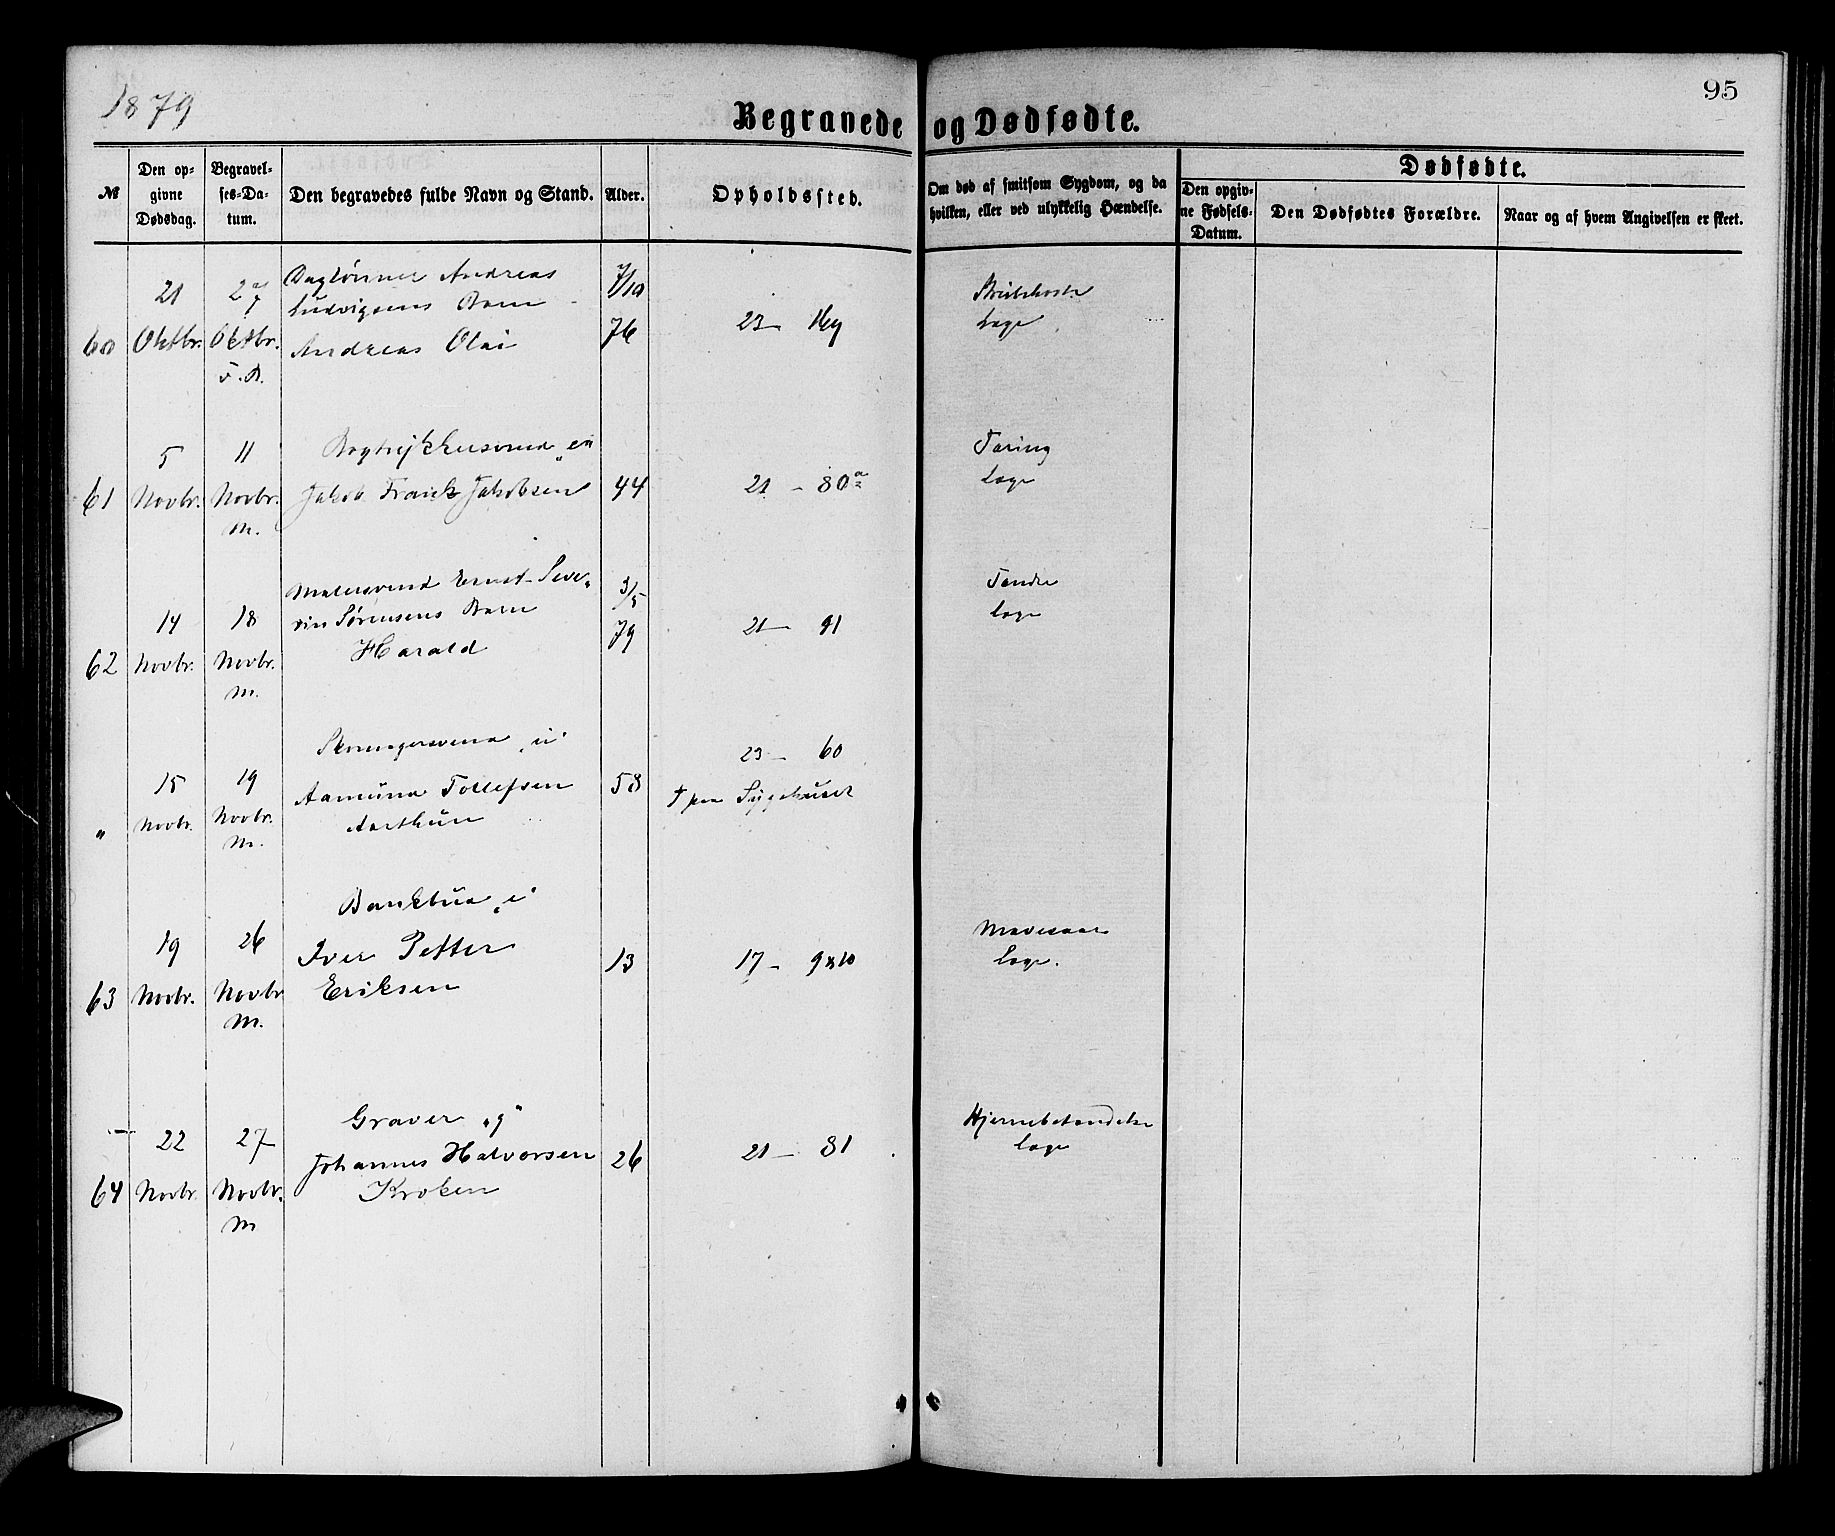 1879
95
Begravede og Dødfødte.
№
Den op-
givne
Dødsdag.
Begravel-
ses-Da-
tum.
Den begravedes fulde Navn og Stand.
Alder.
Opholdssted.
Om død af smitsom Sygdom, og da
hvilken, eller ved ulykkelig Hændelse.
Dødfødte.
Den opgiv-
ne Fødsels-
Datum.
Den Dødfødtes Forældre.
Naar og af hvem Angivelsen er skeet.
60
21
Oktbr.
27
Oktbr.
F. B.
Daglönner Andreas
Ludvigsens Barn
Andreas Olai
7/10
76
23 —
Læge
61
5
Novbr.
11
Novbr.
M.
Jakob Frank Jakobsen
44
21 — 80a
Tæring
Læge
62
14
Novbr.
18
Novbr.
M.
Malersvend Ernst Seve-
rin Sörensens Barn
Harald
3/5
79
21 — 91
Tænder
Læge
"
15
Novbr.
19
Novbr.
M.
Aamund Tollefsen
58
23 — 60
† paa Sygehuset
63
19
Novbr.
26
Novbr.
M.
Bankbud
Iver Petter
Eriksen
13
17 — 9 & 10
Mavesaar
Læge.
64
22
Novbr.
27
Novbr.
M
Graver "g"
Johannes Halvorsen
Kroken
26
21 — 81
Hjernebetændelse
Læge